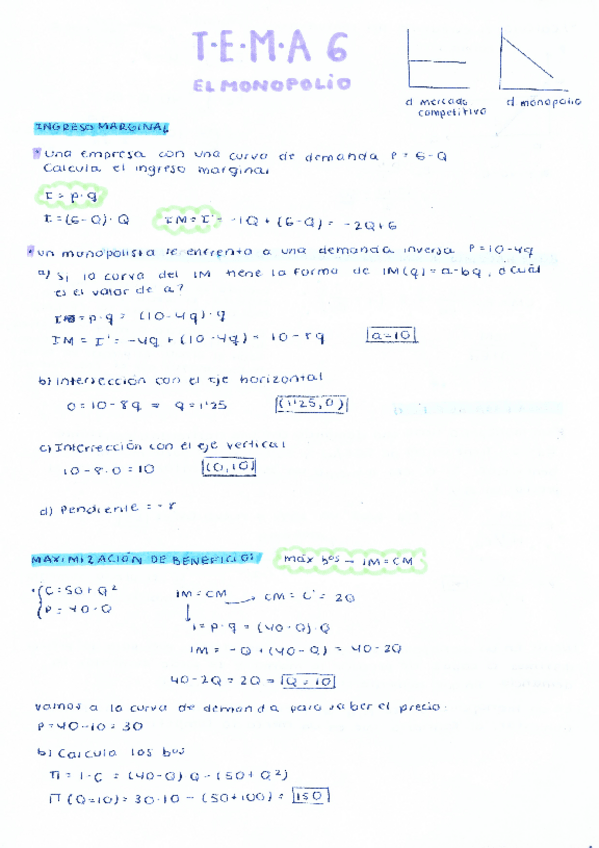 T·E·M·A 6
EL MONOPOLIO
d mercado competitivo
d monopolio
INGRESO MARGINAL
* una empresa con una curva de demanda P = 6-Q
Calcula el ingreso marginal
I = p·q
I = (6-Q)·Q IM = I' = -1Q + (6-Q) = -2Q+6
* un monopolista se enfrenta a una demanda inversa P=10-4q
a) Si la curva del IM tiene la forma de IM(q) = a-bq, ¿cuál
es el valor de a?
I = p·q = (10-4q)·q
IM = I' = -4q + (10-4q) = 10-8q a=10
b) intersección con el eje horizontal
0 = 10-8q ⇒ q = 1'25 (1'25, 0)
c) Intersección con el eje vertical
10-8·0 = 10 (0,10)
d) Pendiente = -8
MAXIMIZACIÓN DE BENEFICIOS máx bos → IM = CM
· C = 50 + Q²
P = 40-Q
IM = CM → CM = C' = 2Q
I = p·q = (40-Q)·Q
IM = -Q + (40-Q) = 40-2Q
40-2Q = 2Q = Q=10
vamos a la curva de demanda para saber el precio.
P = 40-10 = 30
b) Calcula los bos
Π = I-C = (40-Q)Q - (50+Q²)
Π (Q=10) = 30·10 - (50+100) = 150